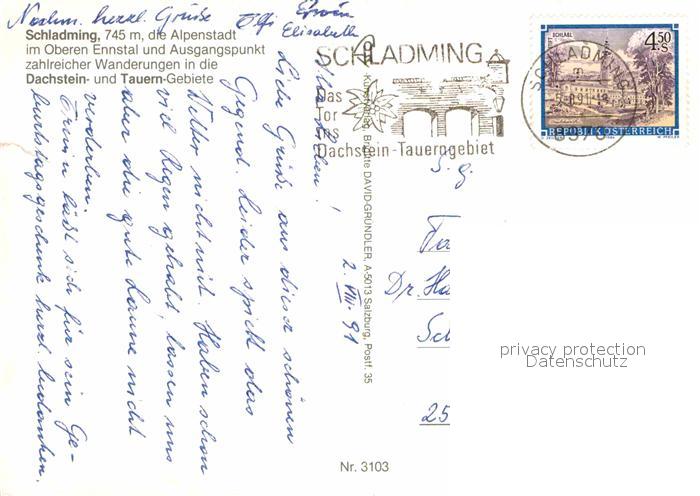 Nochm. herzl. Grüße
Elfi Erwin
Elisabeth
Schladming, 745 m, die Alpenstadt
im Oberen Ennstal und Ausgangspunkt
zahlreicher Wanderungen in die
Dachstein- und Tauern-Gebiete
SCHLADMING
Das
Tor
ins
Dachstein-Tauerngebiet
STIFT SCHLÄGL
4.50
S
REPUBLIK ÖSTERREICH
SCHLADMING
8970
Ihr Lieben!
2. VIII. 91
Liebe Grüße aus dieser schönen
Gegend. Leider spielt das
Wetter nicht mit. Haben schon
viel Regen gehabt, lassen uns
aber die gute Laune nicht
verderben.
Erwin läßt sich für sein Ge-
burtstagsgeschenk herzl. bedanken.
Brigitte DAVID-GRUNDLER, A-5013 Salzburg, Postf. 35
S. g.
Fa
Dr. Ha
Sch
25
privacy protection
Datenschutz
Nr. 3103